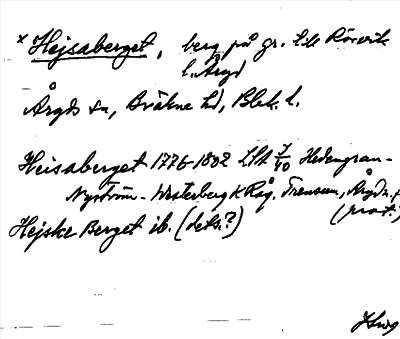 x Hejsaberget, berg på gr. t.ll Rörvik
l. Åryd
Åryds sn, Bräkne hd, Blek. l.
Heisaberget 1776-1802 LSA 7/40 Hedengran-
Nyström-Westerberg K Råg. Trensum, Åryd n. f
(prot.)
Hejske Berget ib. (dets.?)